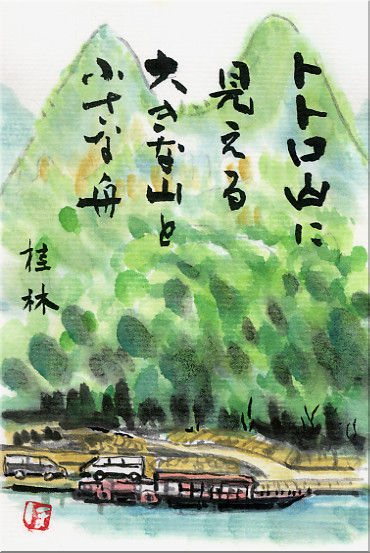 トトロ山に
見える
大きな山と
小さな舟
桂林